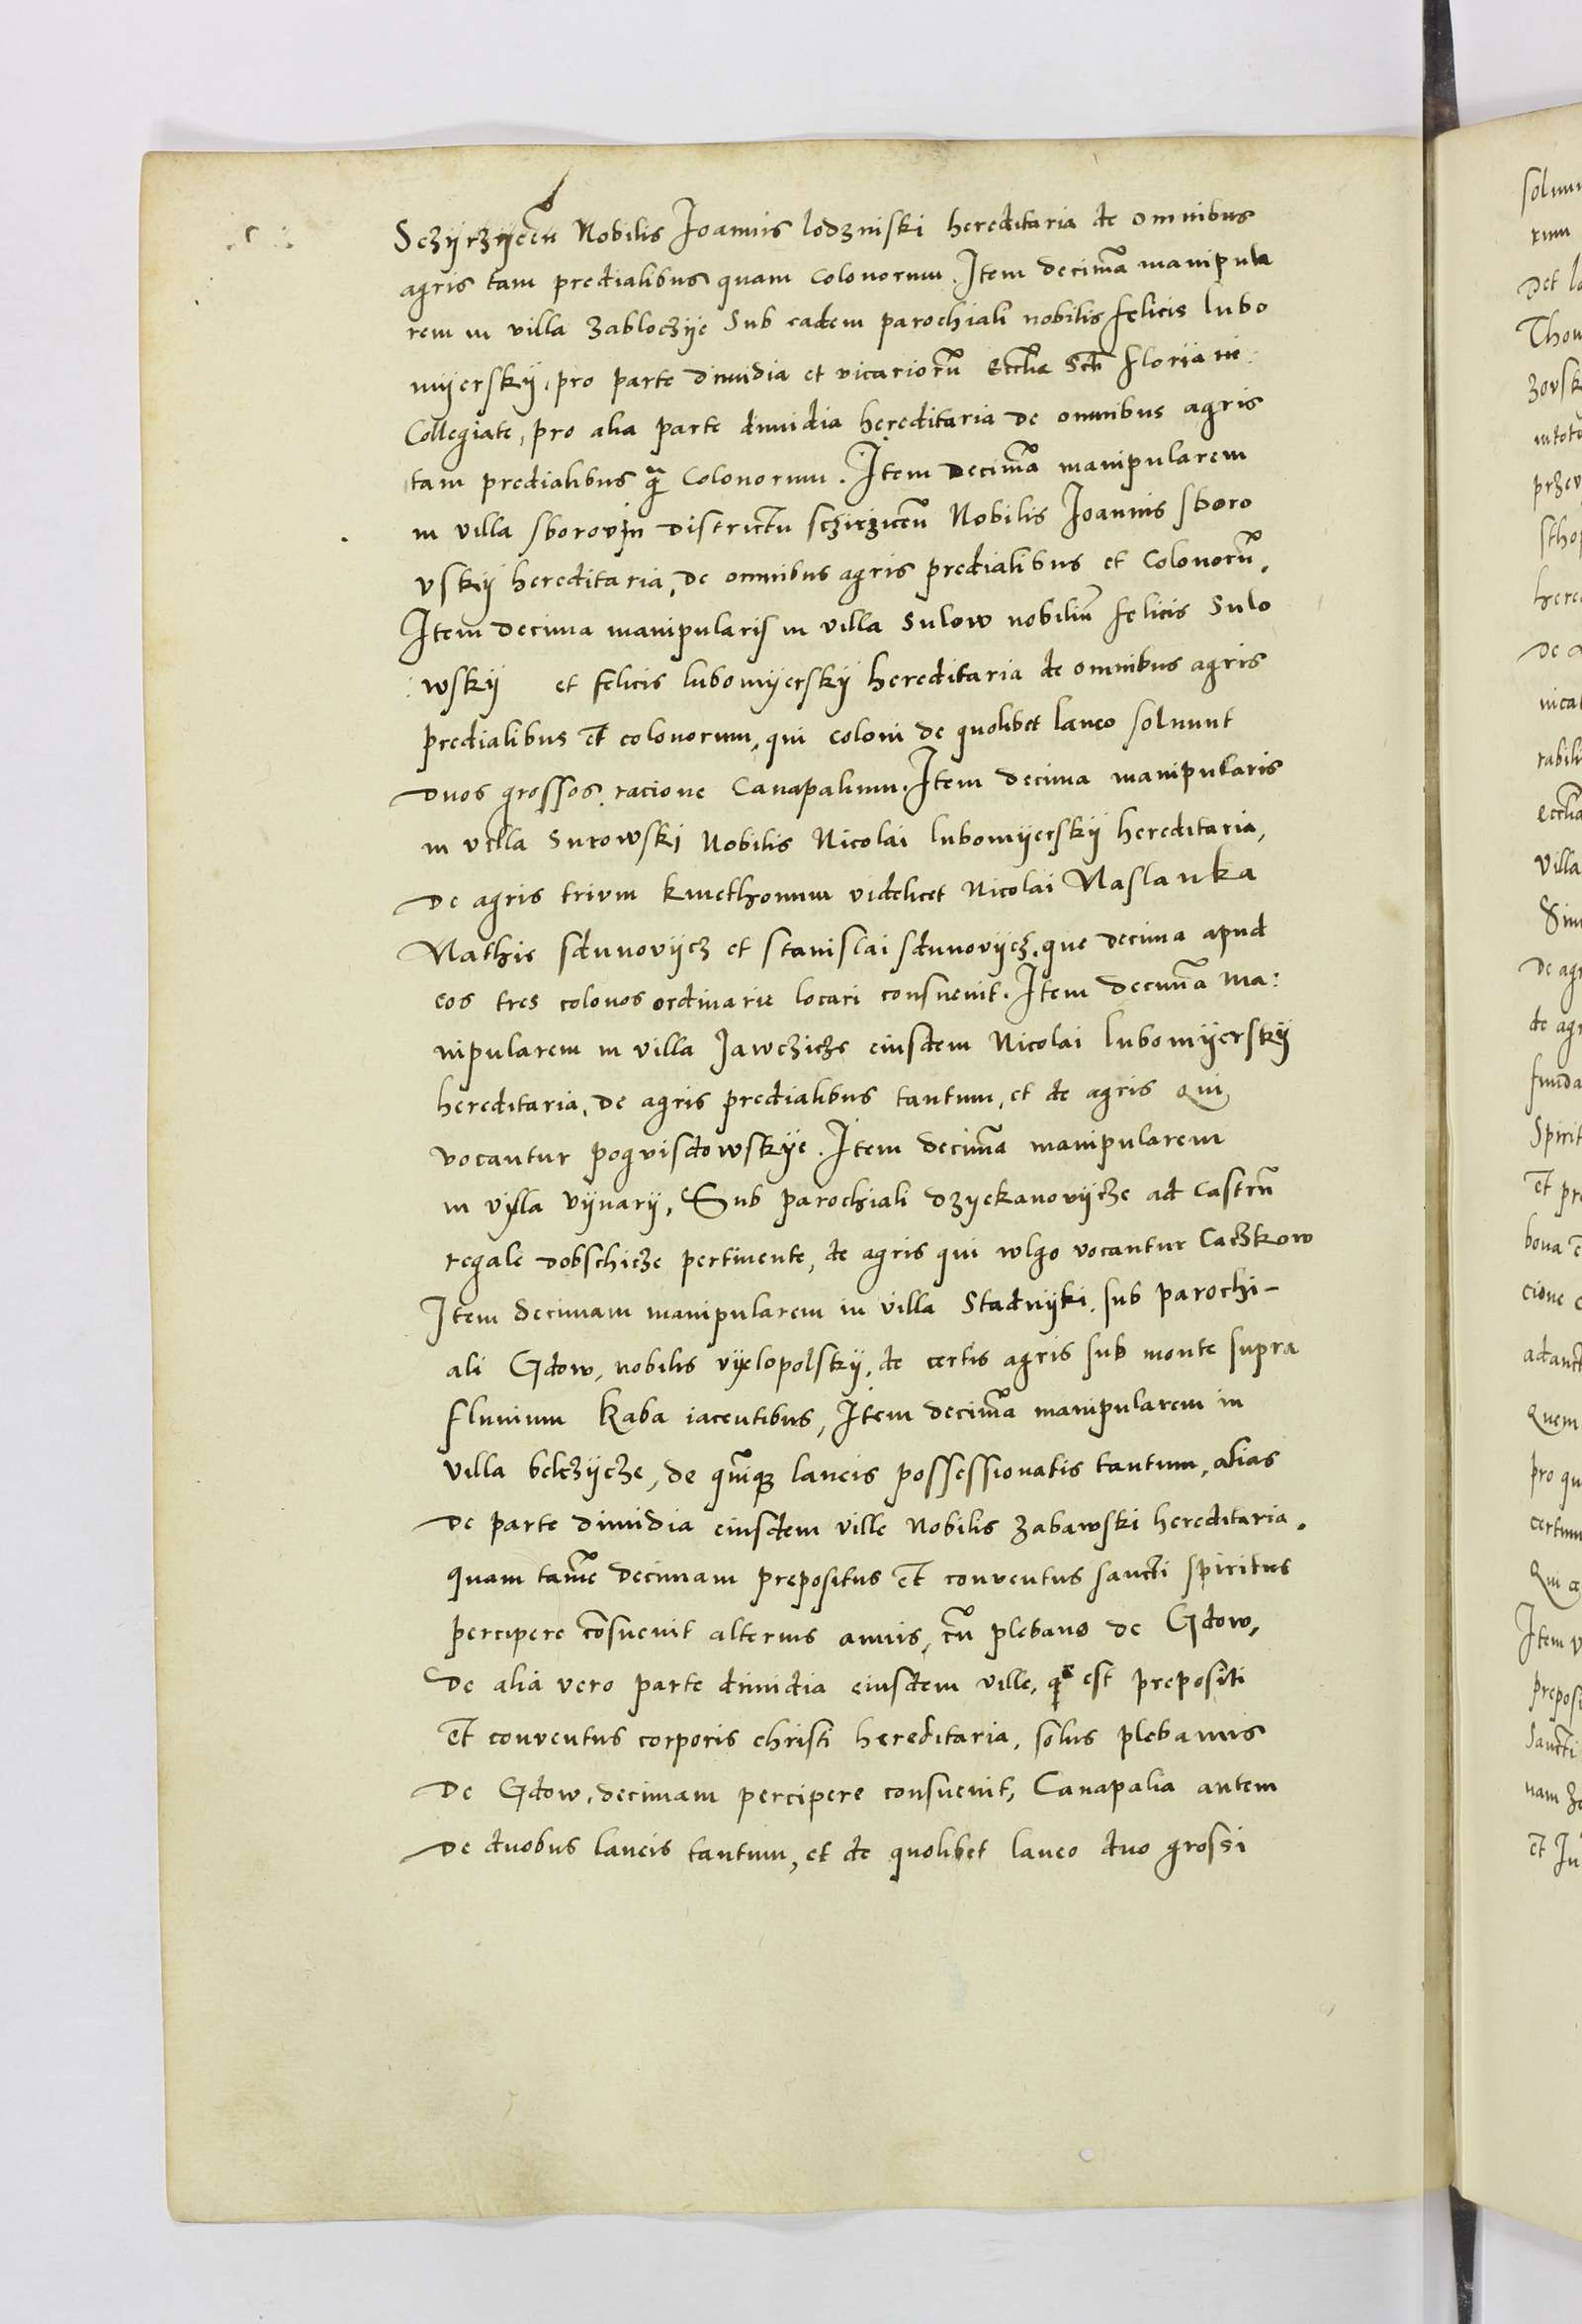 Sczijrzijceñ Nobilis Joannis lodzniski hereditaria de omnibus
agris tam predialibus quam colonorum. Item decimã manipula
rem in villa zabloczije Sub eadem parochiali nobilis felicis lubo
mijerskij, pro parte dimidia et vicariorũ Ecclie Scti florijani
Collegiate, pro alia parte dimidia hereditaria de omnibus agris
tam predialibus q̃ Colonorum. Item Decimã manipularem
in villa sborov in Districtu sczirziceñ Nobilis Joannis sboro
vskij hereditaria, De omnibus agris predialibus et Colonorũ,
Item decima manipularis in villa Sulow nobiliũ felicis Sulo
wskij et felicis lubomijerskij hereditaria de omnibus agris
predialibus et colonorum, qui coloni de quolibet laneo solvunt
Duos grossos, racione Canapalium. Item decima manipularis
in villa Surowski Nobilis Nicolai lubomijerskij hereditaria,
De agris trium kmethonum videlicet Nicolai Maslanka
Mathie sdunovijcz et Stanislai sdunovijcz, que decima apud
eos tres colonos ordinarie locari consuevit. Item Decimã ma:
nipularem in villa Jawczicze eiusdem Nicolai lubomijerskij
hereditaria, De agris predialibus tantum, et de agris qui
vocantur pogvisdowskije. Item decimã manipularem
in villa vijnarij, Sub parochiali dzijekanovijcze ad Castrũ
regale dobschicze pertinente, de agris qui wlgo vocantur Caczkow
Item decimam manipularem in villa Stadnijki, sub parochi-
ali Gdow, nobilis vijelopolskij, de certis agris sub monte supra
fluvium Raba iacentibus, Item decimã manipularem in
villa belczijcze, de quinq; laneis possessionatis tantum, alias
De parte dimidia eiusdem ville Nobilis zabawski hereditaria.
Quam tamẽ decimam prepositus et conventus sancti spiritus
percipere cõsuevit alternis annis, cũ plebano de Gdow,
De alia vero parte dimidia eiusdem ville, q̃ est prepositi
et conventus corporis christi hereditaria, solus plebanus
De Gdow, decimam percipere consuevit, Canapalia autem
De duobus laneis tantum, et de quolibet laneo duo grossi